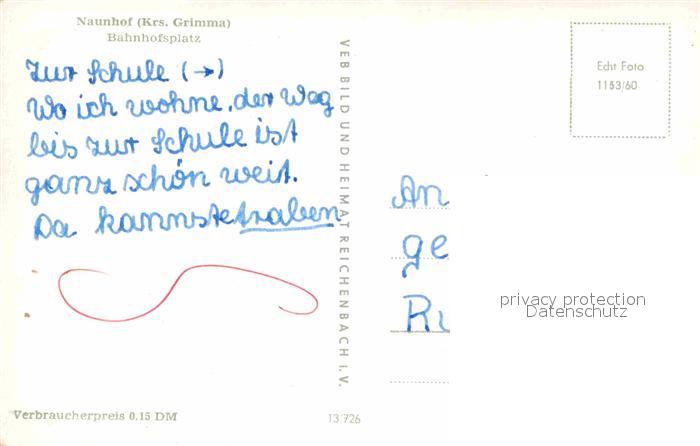 Naunhof (Krs. Grimma)
Bahnhofsplatz
Zur Schule (→)
Wo ich wohne, der Weg
bis zur Schule ist
ganz schön weit.
Da kannste traben
VEB BILD UND HEIMAT REICHENBACH I. V.
Echt Foto
1153/60
An
ge
Ru
privacy protection
Datenschutz
Verbraucherpreis 0,15 DM
13 726